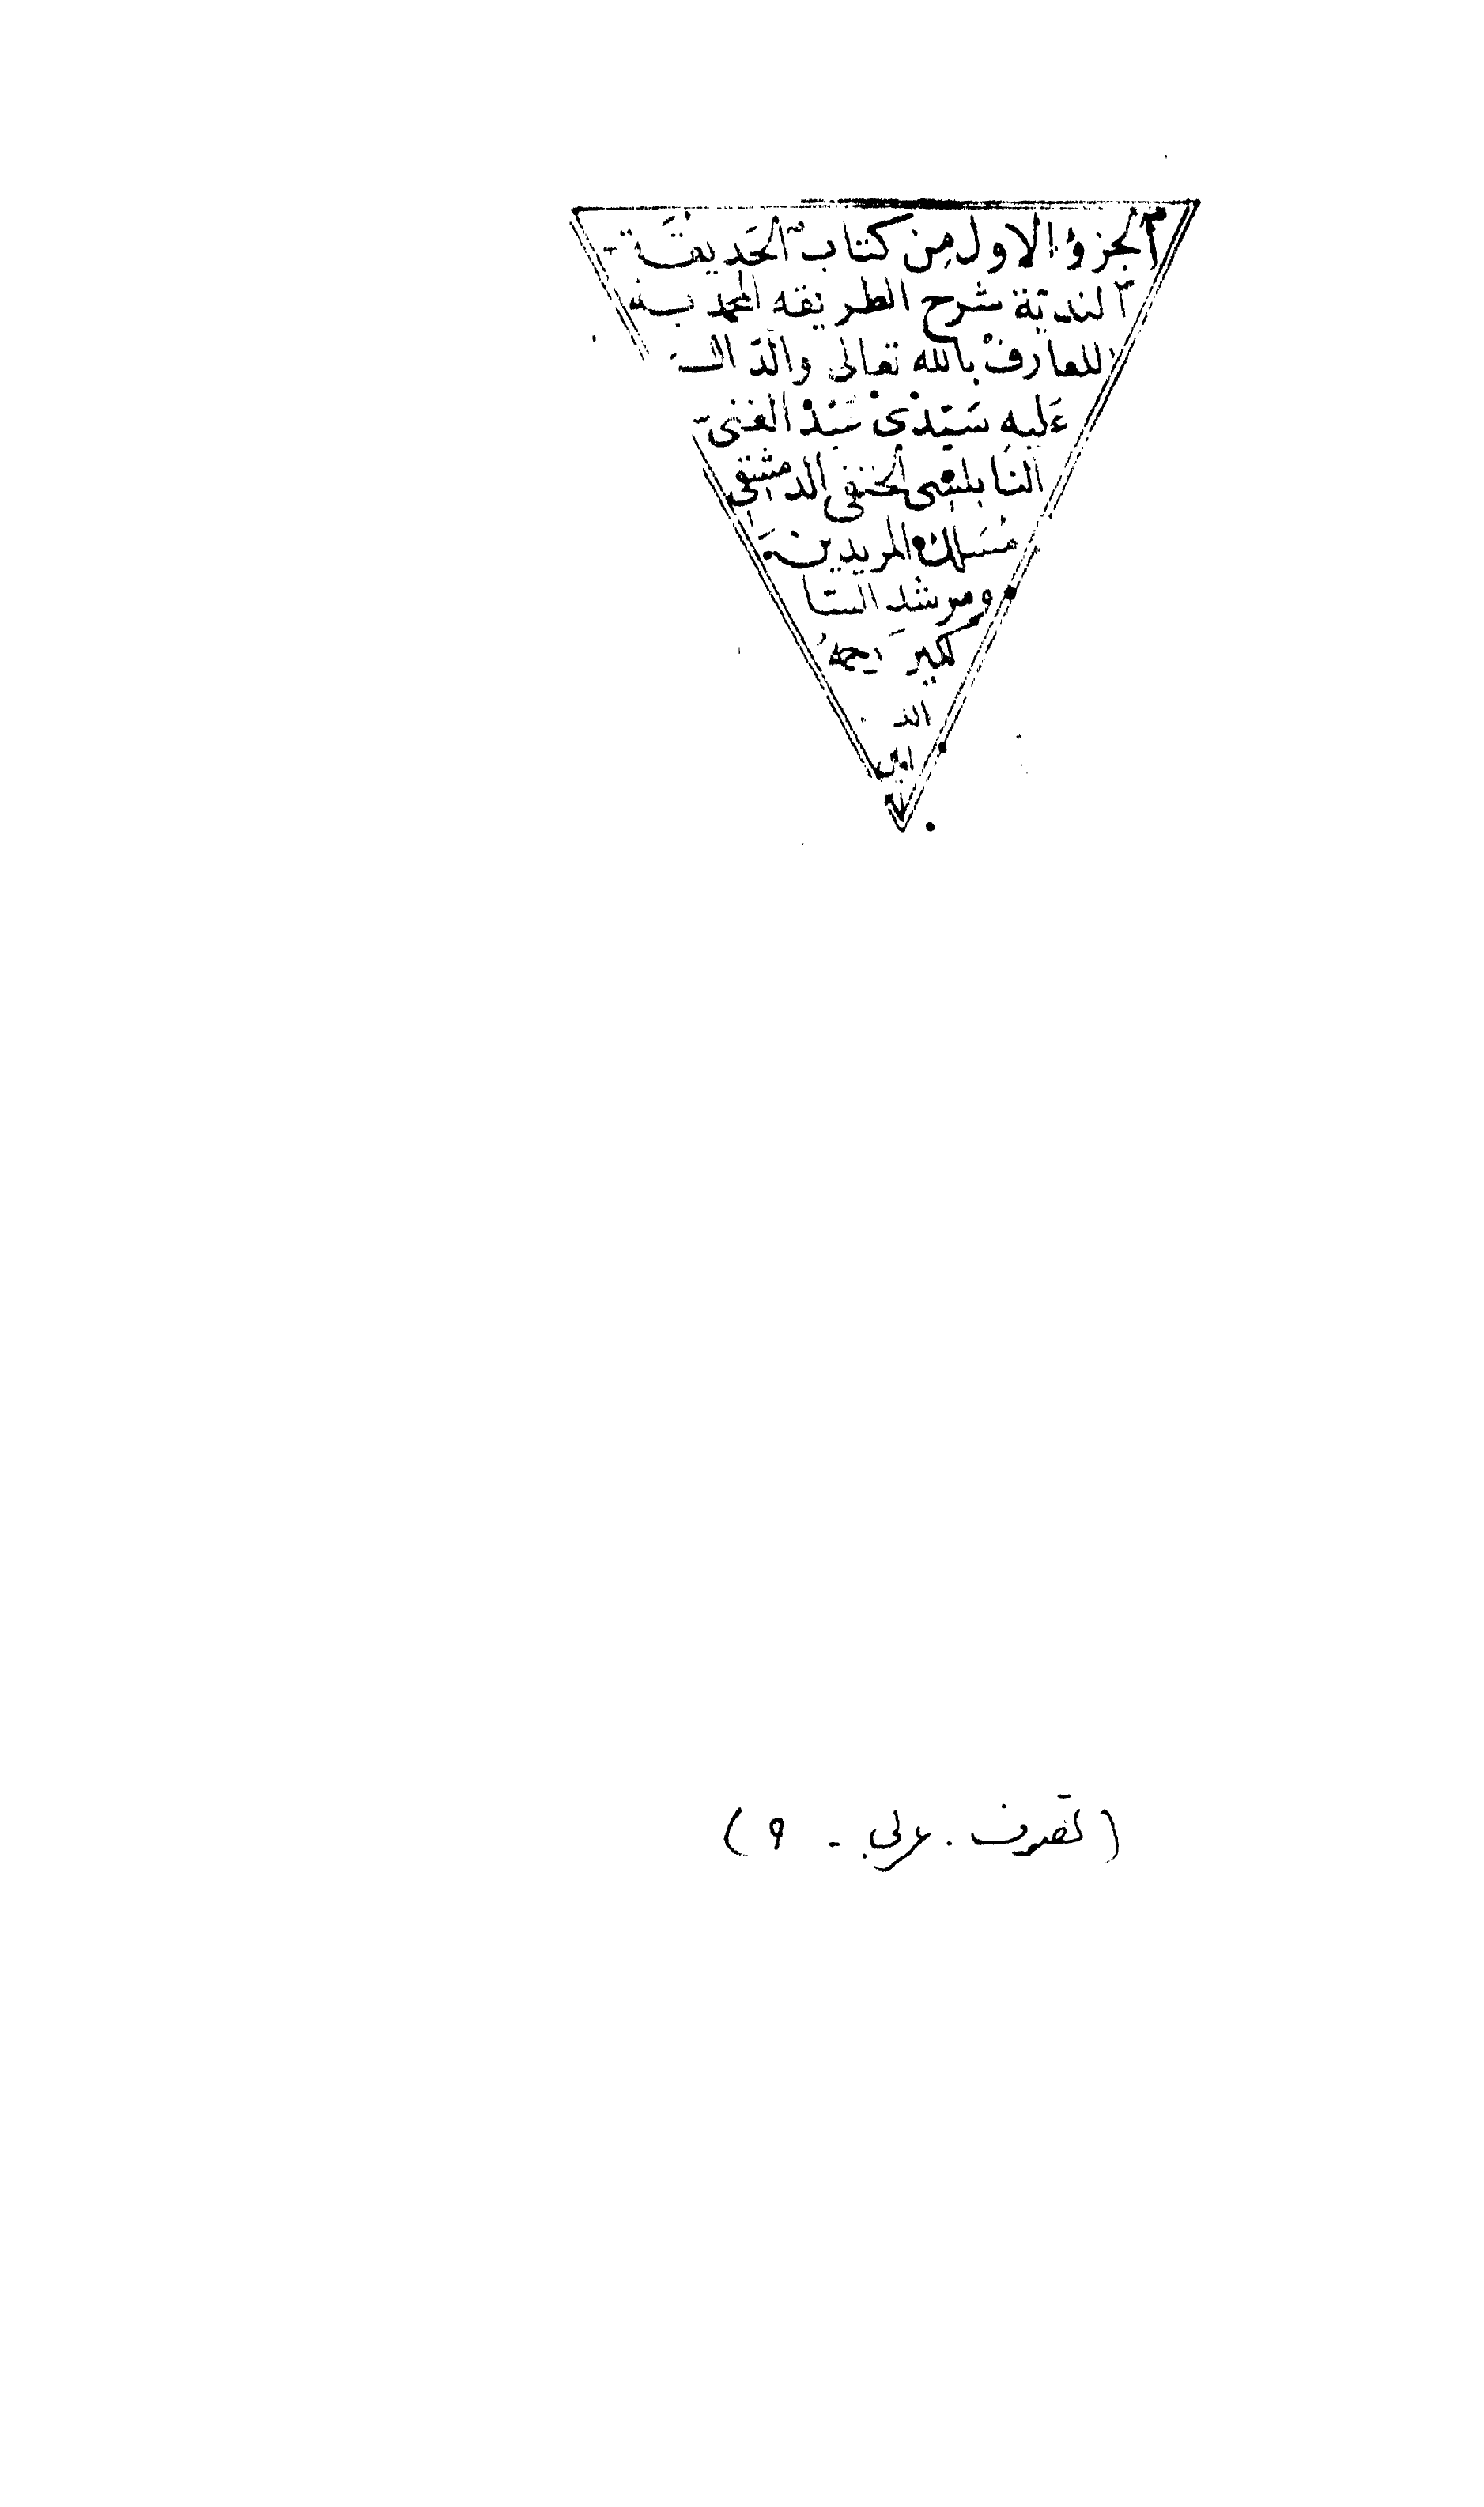 الجزؤ الاول من كتاب الحديقة
الندية شرح الطريقة المحمدية
للعارف بالله تعالى والدال
عليه سيدى عبد الغنى
النابلسى الحنفى الدمشقى
مسلك المريدين
ومرشد السا
لكين رحمه
الله
امين
(تصوف . عربي - ٩)